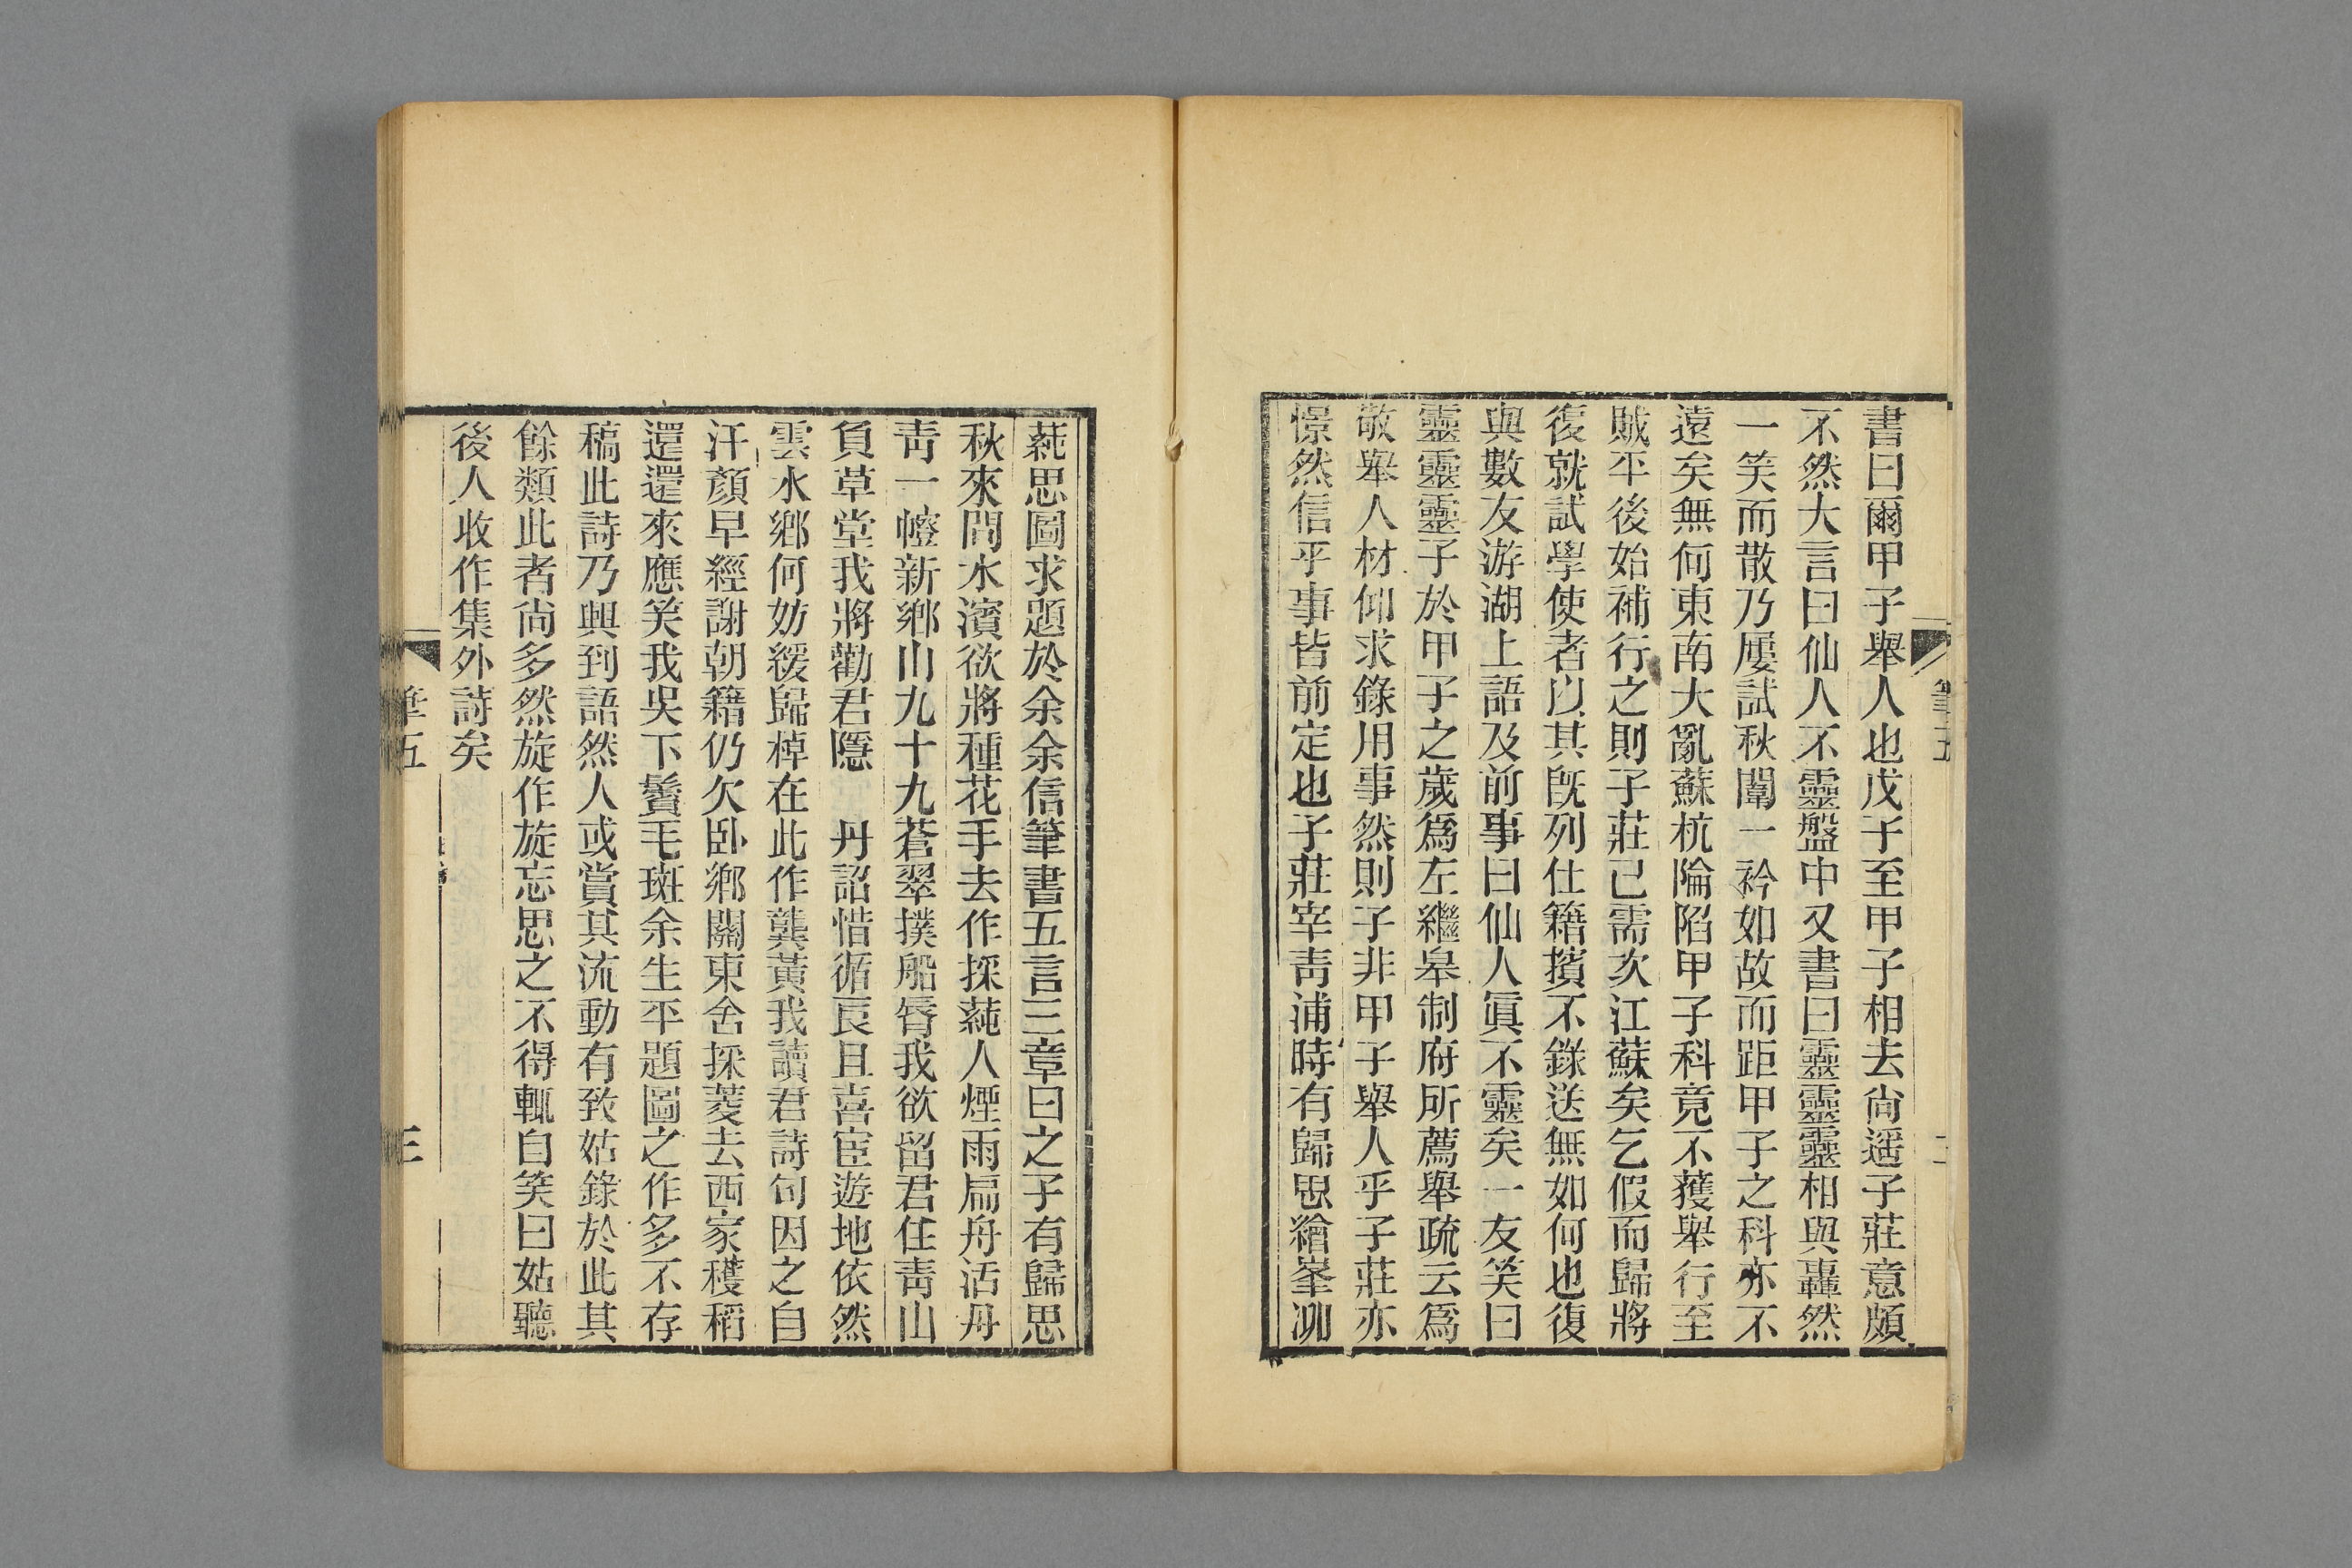 書曰爾甲子舉人也戊子至甲子相去尚遥子莊意頗
不然大言曰仙人不靈盤中又書曰靈靈靈相與轟然
一笑而散乃屢試秋闈一衿如故而距甲子之科亦不
遠矣無何東南大亂蘇杭陯陷甲子科竟不獲舉行至
賊平後始補行之則子莊已需次江蘇矣乞假而歸將
復就試學使者以其旣列仕籍擯不錄送無如何也復
與數友游湖上語及前事曰仙人眞不靈矣一友笑曰
靈靈靈子於甲子之歲爲左繼皋制府所薦舉疏云爲
敬舉人材仰求錄用事然則子非甲子舉人乎子莊亦
憬然信乎事皆前定也子莊宰靑浦時有歸思繪峯泖
蒓思圖求題於余余信筆書五言三章曰之子有歸思
秋來問水濱欲將種花手去作採蒓人煙雨扁舟活丹
靑一幢新鄉山九十九蒼翠撲船脣我欲留君住靑山
負草堂我將勸君隱 丹詔惜循良且喜宦遊地依然
雲水鄉何妨緩歸棹在此作龔黃我讀君詩句因之自
汗顏早經謝朝籍仍欠臥鄉關東舍採菱去西家穫稻
還還來應笑我吳下鬢毛斑余生平題圖之作多不存
稿此詩乃興到語然人或賞其流動有致姑錄於此其
餘類此者尚多然旋作旋忘思之不得輒自笑曰姑聽
後人收作集外詩矣
筆五
三